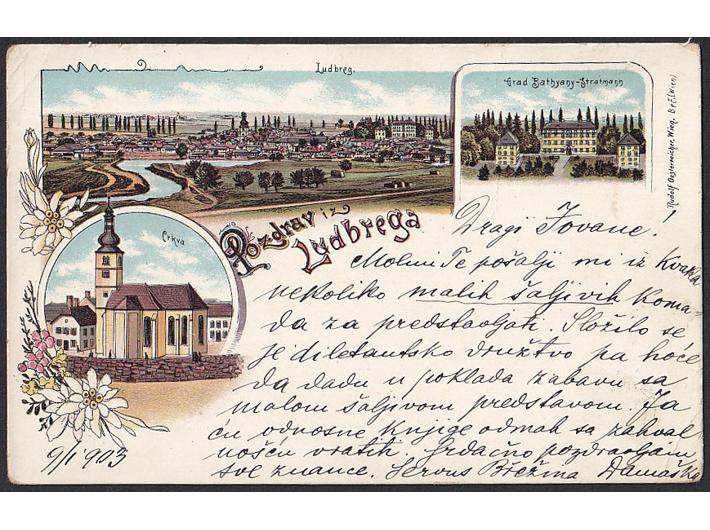 Ludbreg.
Grad Bathyany-Stratmann
Rudolf Oesterreicher, Wien,
Crkva
Pozdrav iz
Ludbrega
Dragi Jovane!
Molim Te pošalji mi iz
nekoliko malih šaljivih koma-
da za predstavljati. Složilo se
je diletantsko društvo pa hoće
da dadu u poklada zabavu sa
malom šaljivom predstavom. Ja
ću odnosne knjige odmah sa zahval
nošću vratiti. Srdačno pozdravljam
sve znance. Servus
9/1 903